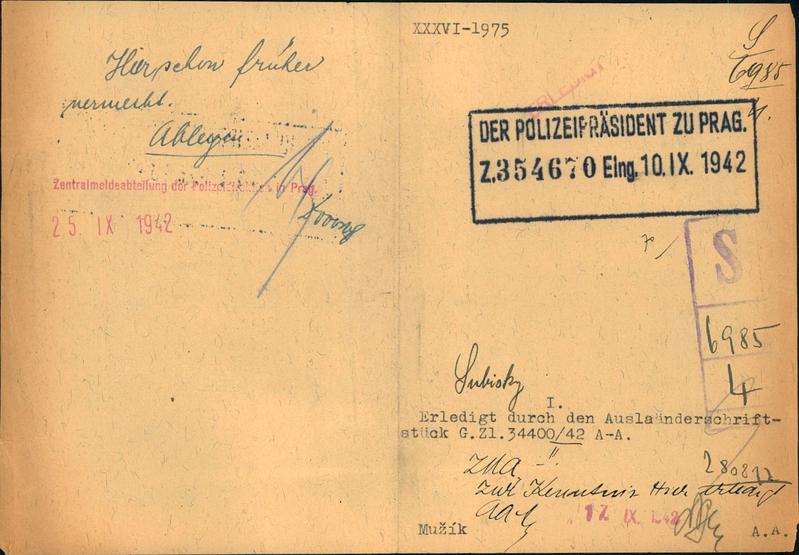 Hier schon früher
vermerkt.
Ablegen
Zentralmeldeabteilung der Polizeidirektion in Prag.
25. IX 1942
XXXVI-1975
S
6985
4.
ERLEDIGT
DER POLIZEIPRÄSIDENT ZU PRAG.
Z. 354670 Eing. 10. IX. 1942
S
6985
4
I.
Erledigt durch den Auslaänderschrift-
stück G.Zl.34400/42 A-A.
ZMA -"-
zur Kenntnis
17 IX 1942
Mužík
A.A.